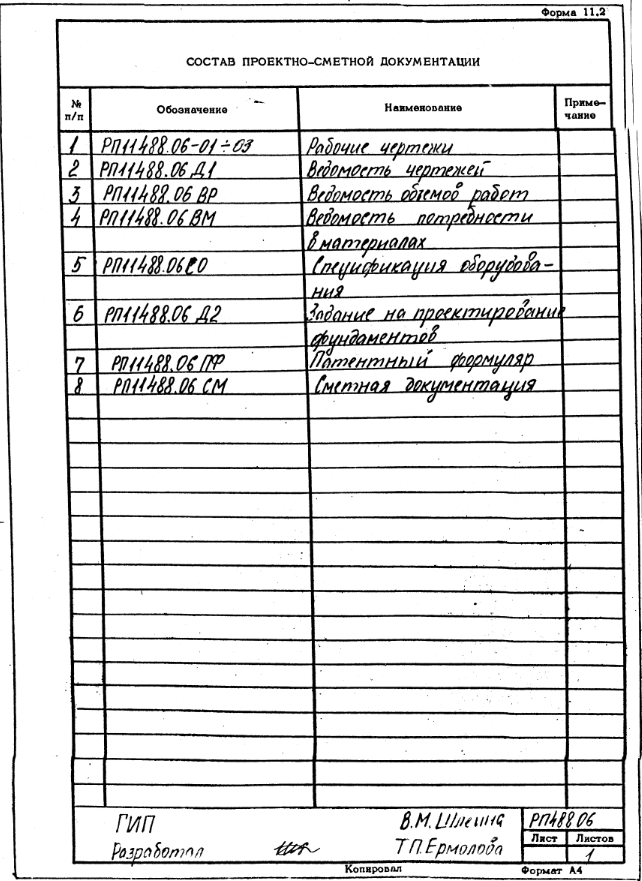 Форма 11.2
СОСТАВ ПРОЕКТНО-СМЕТНОЙ ДОКУМЕНТАЦИИ
№ п/п Обозначение Наименование Приме-чание
1 РП11488.06-01÷03 Рабочие чертежи
2 РП11488.06 Д1 Ведомость чертежей
3 РП11488.06 ВР Ведомость объемов работ
4 РП11488.06 ВМ Ведомость потребности
в материалах
5 РП11488.06 СО Спецификация оборудова-
ния
6 РП11488.06 Д2 Задание на проектирование
фундаментов
7 РП11488.06 ПФ Патентный формуляр
8 РП11488.06 СМ Сметная документация
ГИП В.М. РП488 06
Лист Листов
Разработал Т.П. Ермолова 1
Копировал Формат А4